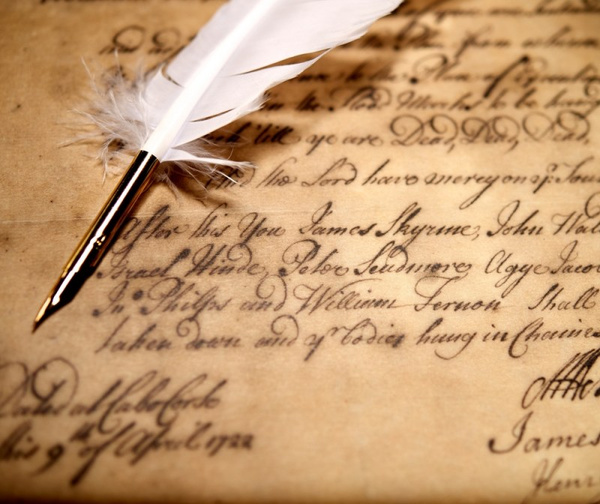 and
from whence
to the Place of Execution
the
till ye are Dead, Dead, Dead
and the Lord have mercy on yr. Soul
After this You James Skyrme, John Wal
Israel Hinde, Peter Scudmore, Agge Jacob
Jno Philips and William Fernon Shall
taken down and yr bodies hung in Chaines
Dated at Cabo Corso
this 9th of April 1722
James
Henr